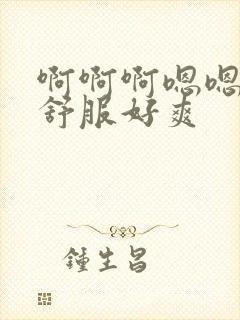 啊啊啊嗯嗯
舒服好爽
鍾生昌